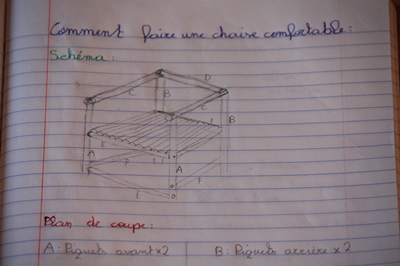 Comment faire une chaise comfortable :
Schéma :
D
C
B
C
B
E
A
F
A
F
E
Plan de coupe :
A : Piquets avant x2
B : Piquets arrière x2